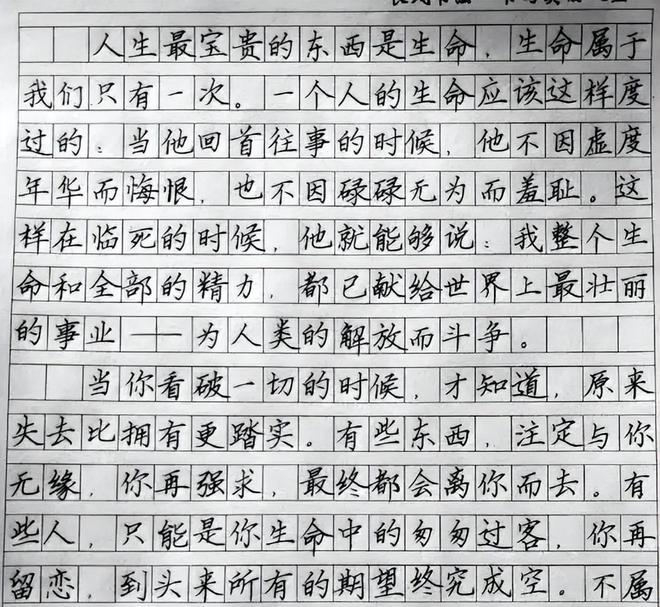 人生最宝贵的东西是生命，生命属于
我们只有一次。一个人的生命应该这样度
过的：当他回首往事的时候，他不因虚度
年华而悔恨，也不因碌碌无为而羞耻。这
样在临死的时候，他就能够说：我整个生
命和全部的精力，都已献给世界上最壮丽
的事业——为人类的解放而斗争。
当你看破一切的时候，才知道，原来
失去比拥有更踏实。有些东西，注定与你
无缘，你再强求，最终都会离你而去。有
些人，只能是你生命中的匆匆过客，你再
留恋，到头来所有的期望终究成空。不属